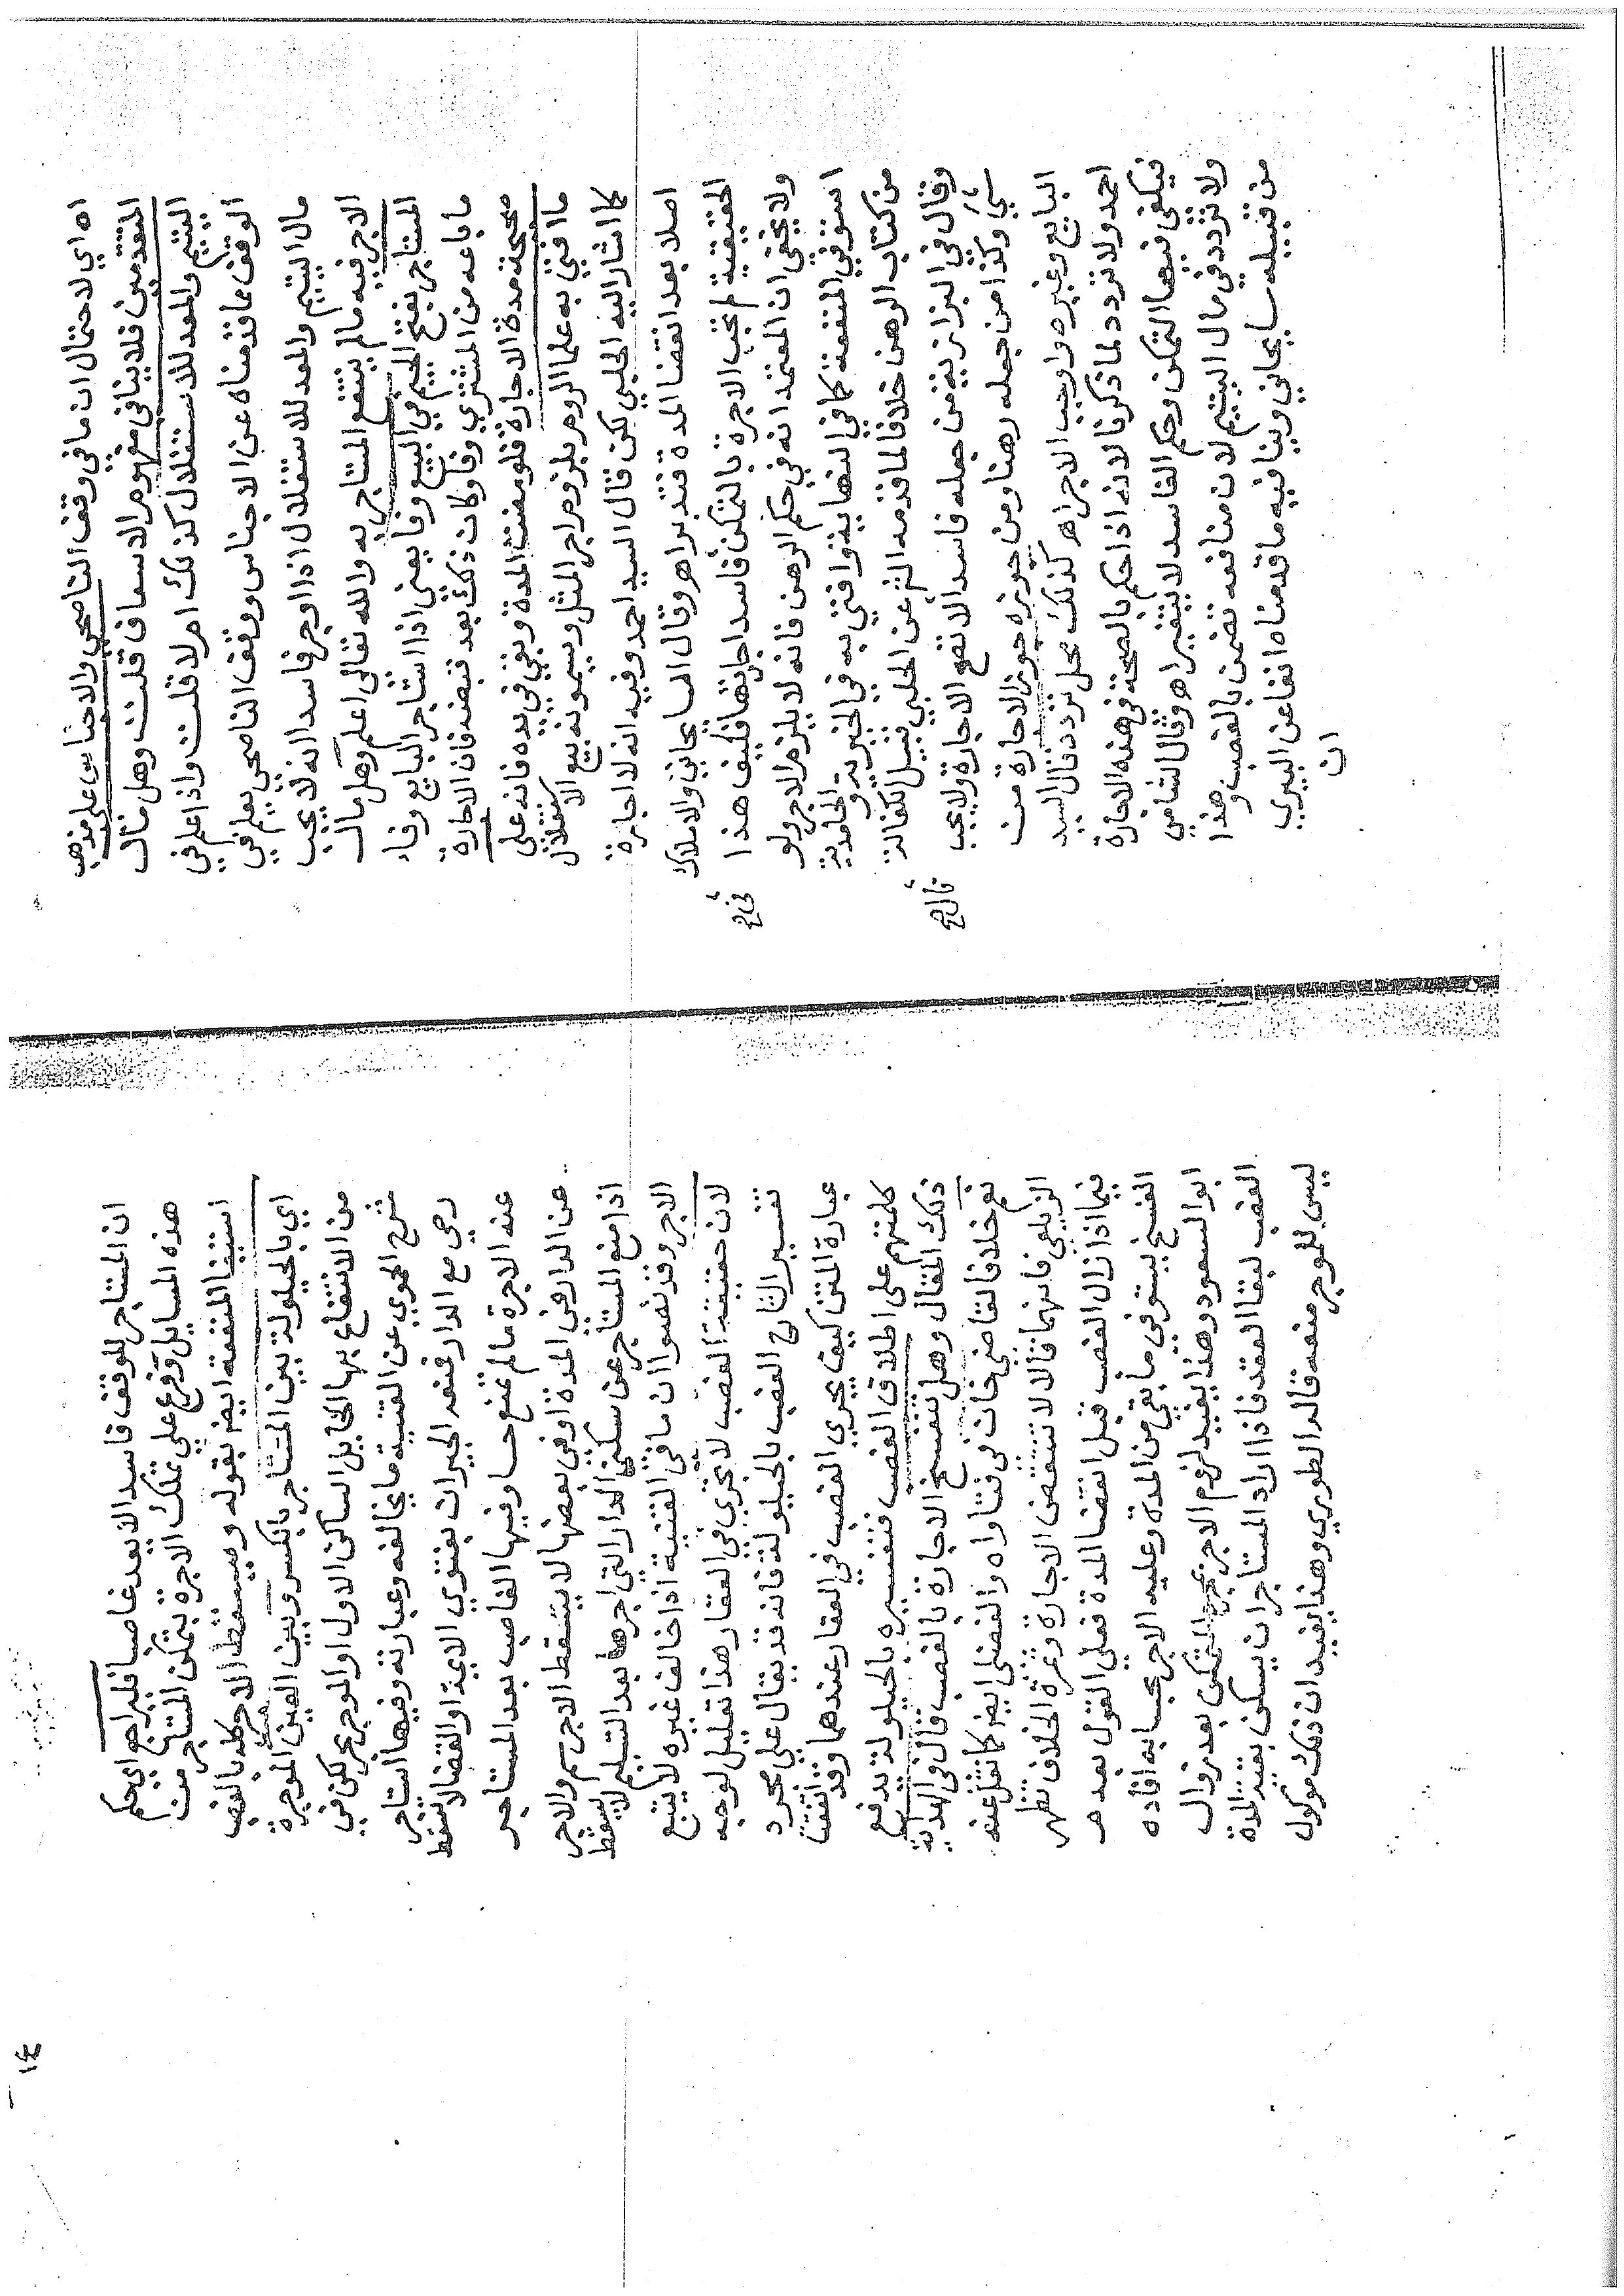 اه اي لاحتمال ان ما في وقف الناصحي والاجناس على مذهب
المتقدمين فلا ينافي مفهوم الاسعاف قلت وهل مال
اليتيم والمعد للاستغلال كذلك ام لا قلت واذا علم في
الوقف مما قدمناه عن الاجناس ووقف الناصحي يعلم في
مال اليتيم والمعد للاستغلال اذا اوجر فاسدا انه لا يجب
الاجر فيه ما لم ينتفع المستاجر به والله تعالى اعلم وهل مال
المستاجر بفتح الجيم في البيع وفا يعني اذا استاجر البايع وفاء
ما باعه من المشتري وفا وكان ذلك بعد قبضه فان الاجارة
صحيحة مدة الاجارة فلو مضت المدة وبقي في يده فانه على
ما افتي به علما الروم بلزوم اجر المثل ويسمونه بيع الاستغلال
كما اشار اليه الحلبي لكن قال السيد احمد وفيه انه لا اجارة
اصلا بعد انقضا المدة فتدبر اهـ وقال السايحاني والاملاك
الحقيقية لم تجب الاجرة بالتمكن فاسد اجارتها فكيف هذا
ولا يخفى ان المعتمد انه في حكم الرهن فانه لا يلزم الاجر ولو
استوفي المنفعة كما في النهاية وافتي به في الخيرية والحامدية
من كتاب الرهن خلافا لما قدمه الش عن الحلبي قبيل الكفالة
وقال في البزازية من جعله فاسدا لا تقع الاجارة ولا يجب
شي وكذا من جعله رهنا ومن جوزه جوز الاجارة من
البايع وغيره واوجب الاجر اهـ كذلك محل تردد قال السيد
احمد ولا تردد لما ذكرنا لانه اذا حكم بالصحة في هذه الاجارة
فيكفي فيها التمكن وحكم الفاسد لا يتغير اهـ وقال الشامي
ولا تردد في مال اليتيم لان منافعه تضمن بالغصب وهذا
من قبيله سايحاني وينافيه ما قدمناه انفا عن البيري
ان
ان المستاجر للوقف فاسدا لا يعد غاصبا فليراجع اي حكم
هذه المسايل وفرع على تملك الاجرة بتمكن المستاجر من
استيفا المنفعة ايضا بقوله ويسقط الاجر كله بالغصب
اي بالحيلولة بين المستاجر بالكسر وبين العين الموجرة
من الانتفاع بها الحايل الساكن الاول او الموجر لكن في
شرح الحموي عن القنية ما يخالفه وعبارته وفيها استاجر
رحي مع الدار فمنعه الجيران بفتوي الايمة او القضا لا تسقط
عنه الاجرة ما لم تمنع حسا وفيها الغاصب بعد المستاجر
عن الدار في المدة او في بعضها لا يسقط الاجر سم والاجر
اذا منع المستاجر عن سكني الدار التي اجرها بعد التسليم لا يسقط
الاجر وقد نصوا ان ما في القنية اذا خالف غيره لا يتبع
لان حقيقة الغصب لا تجري في العقار هذا تعليل لوجه
تفسير الشارح الغصب بالحيلولة فانه قد يقال علي مجرد
عبارة المتن كيف يجري الغصب في العقار عندهما وقد اتفقت
كلمتهم على اطلاق الغصب فتفسيره بالحيلولة يدفع
ذلك المقال وهل تنفسخ الاجارة بالغصب قال في الهداية
نعم خلافا لقاضي خان في فتاواه والفضلي ايضا كما نقل عنه
الزيلعي فانهما قالا لا تنتقض الاجارة وثمرة الخلاف تظهر
فيما اذا زال الغصب قبل انقضا المدة فعلي القول بعدم
الفسخ يستوفي ما بقي من المدة وعليه الاجر بحسابه افاده
ابو السعود وهذا يفيد لزوم الاجر بمجرد التمكن بعد زوال
الغصب لبقا العقد فاذا اراد المستاجر ان يسكن بقية المدة
ليس للموجر منعه قاله الطوري وهذا يفيد ان ذلك موكول
١٤